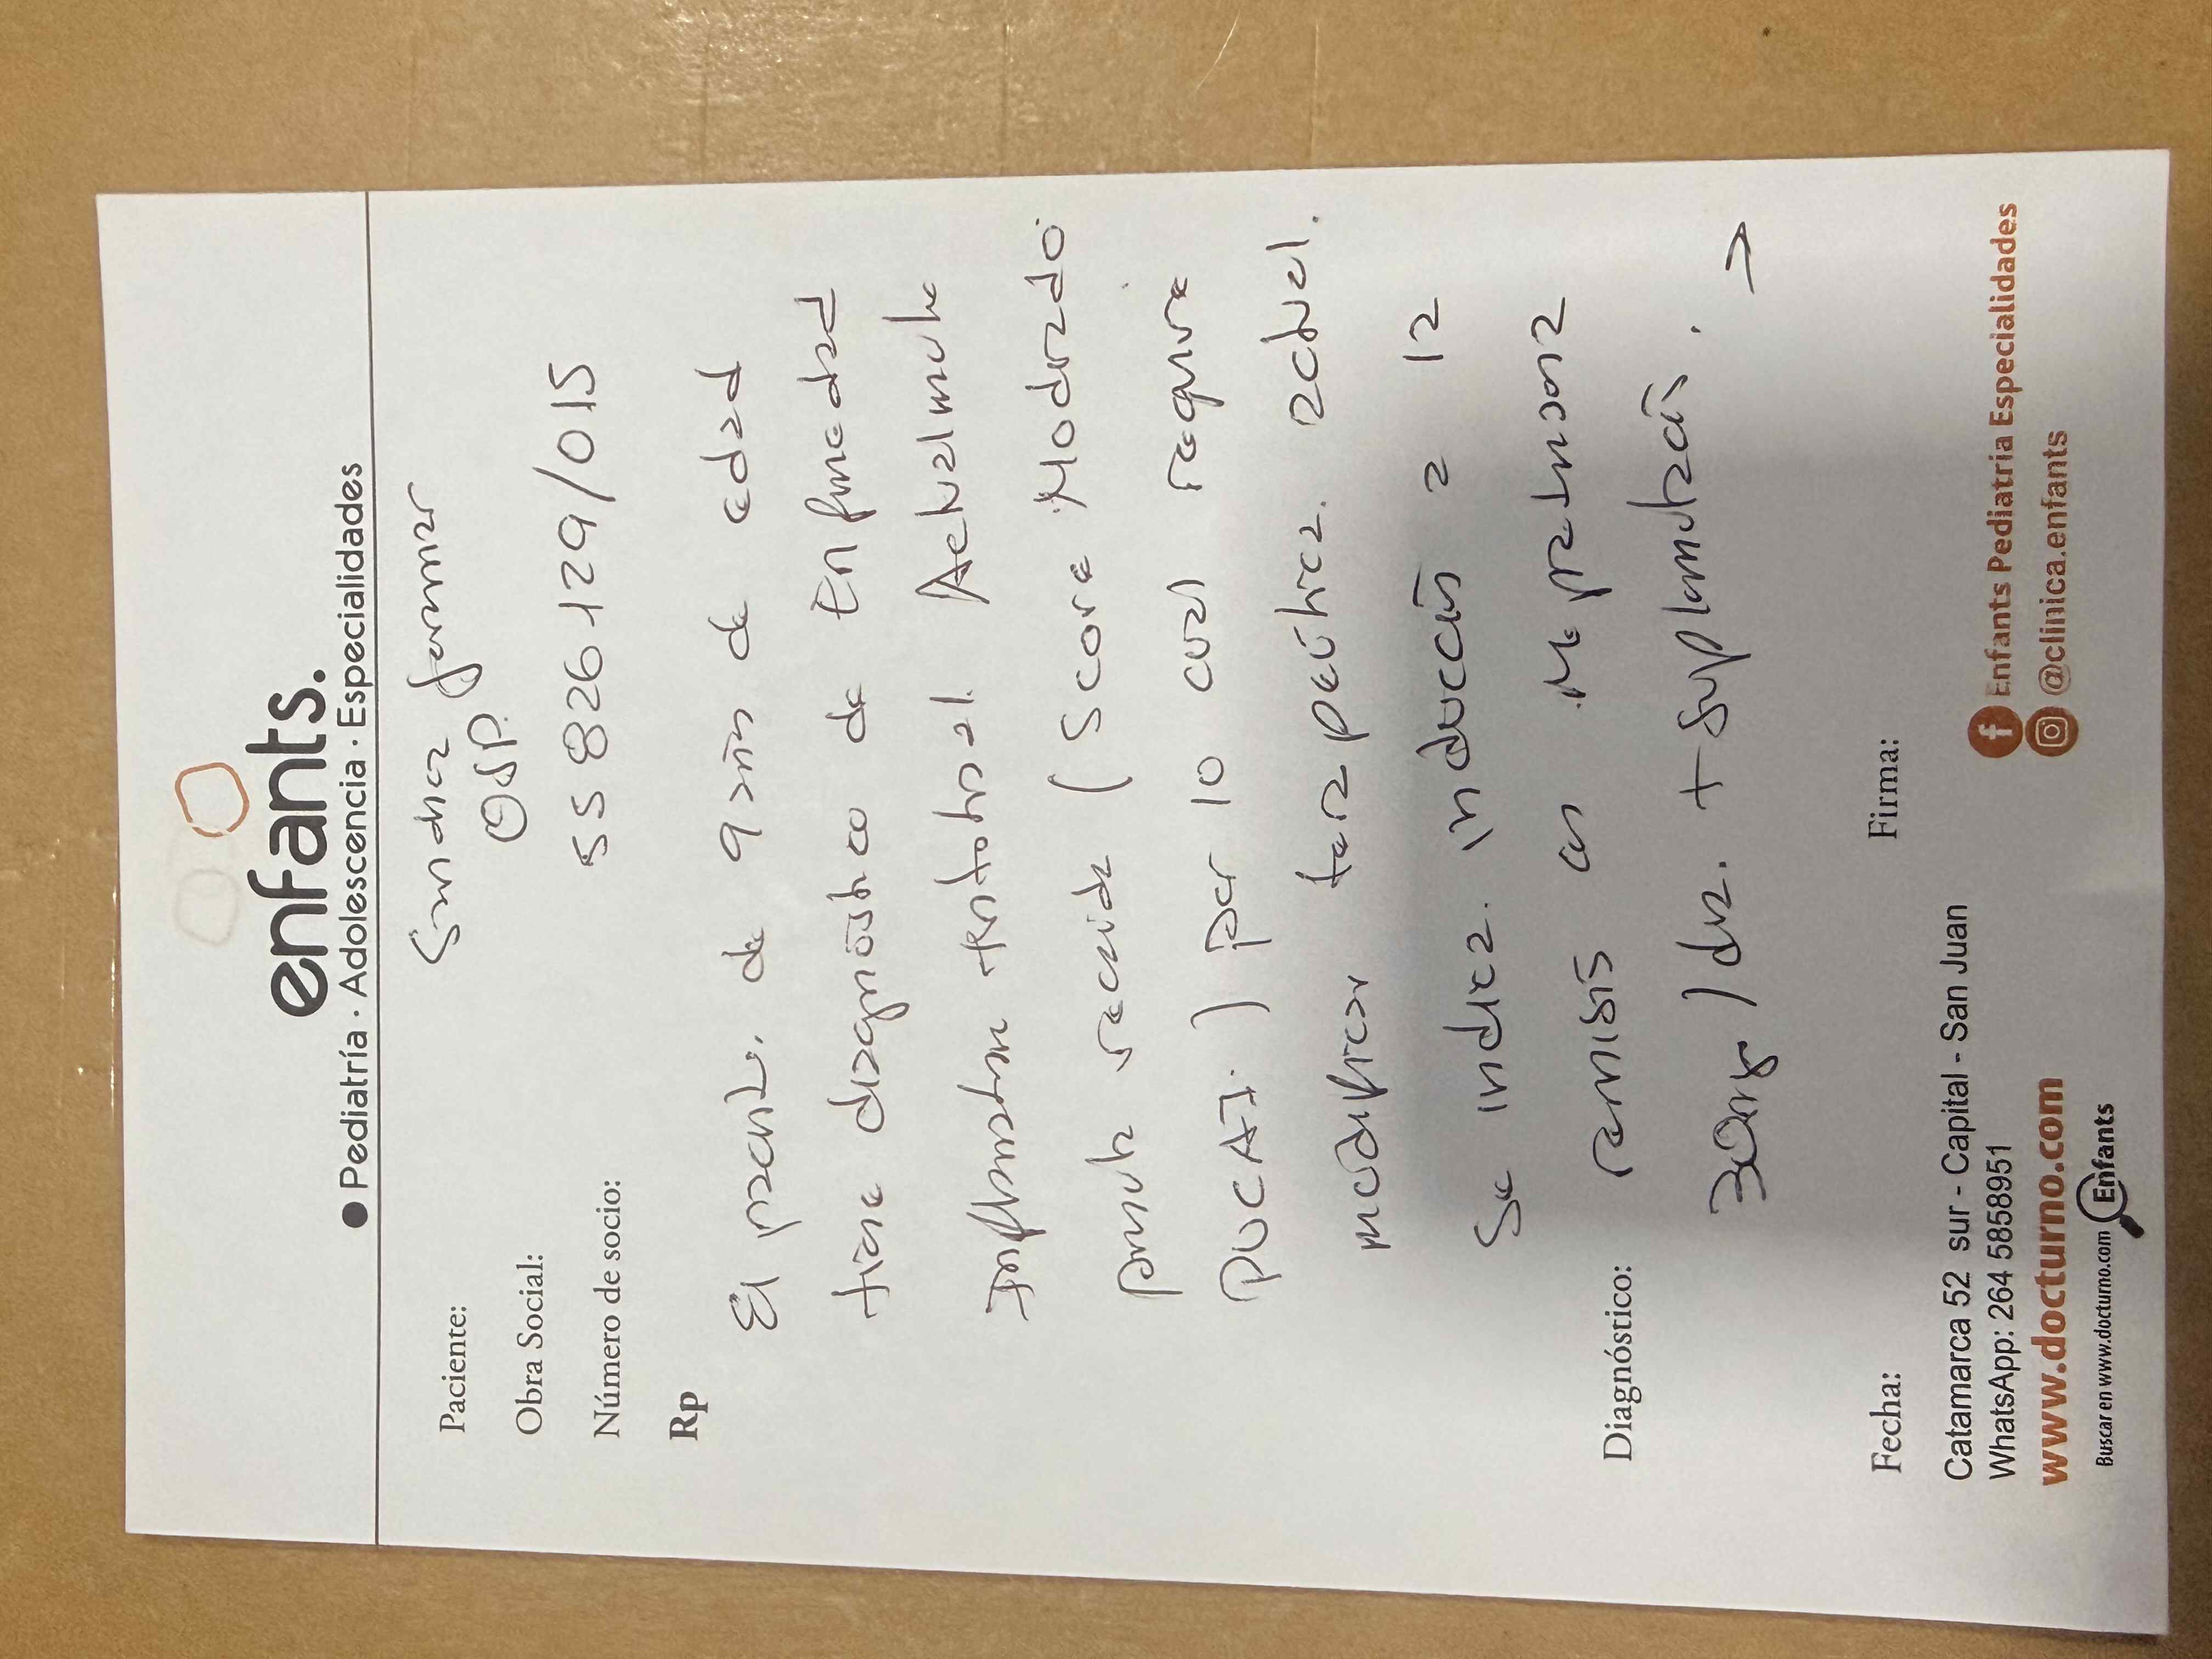 enfants.
● Pediatría · Adolescencia · Especialidades
Paciente:
Obra Social: OSP.
Número de socio: 55 826 129/015
Rp
El paciente, de 9 años de edad
tiene diagnóstico de Enfermedad
Inflamatoria intestinal. Actualmente
presenta recaida (score Moderado
PUCAI.) por lo cual requiere
modificar terapeútica actual.
Se indica. inducción a la
remisión con Meprednisona
30mg/dia. + suplementación. →
Diagnóstico:
Fecha:
Firma:
Catamarca 52 sur - Capital - San Juan
WhatsApp: 264 5858951
www.docturno.com
Buscar en www.docturno.com Enfants
Enfants Pediatria Especialidades
@clinica.enfants